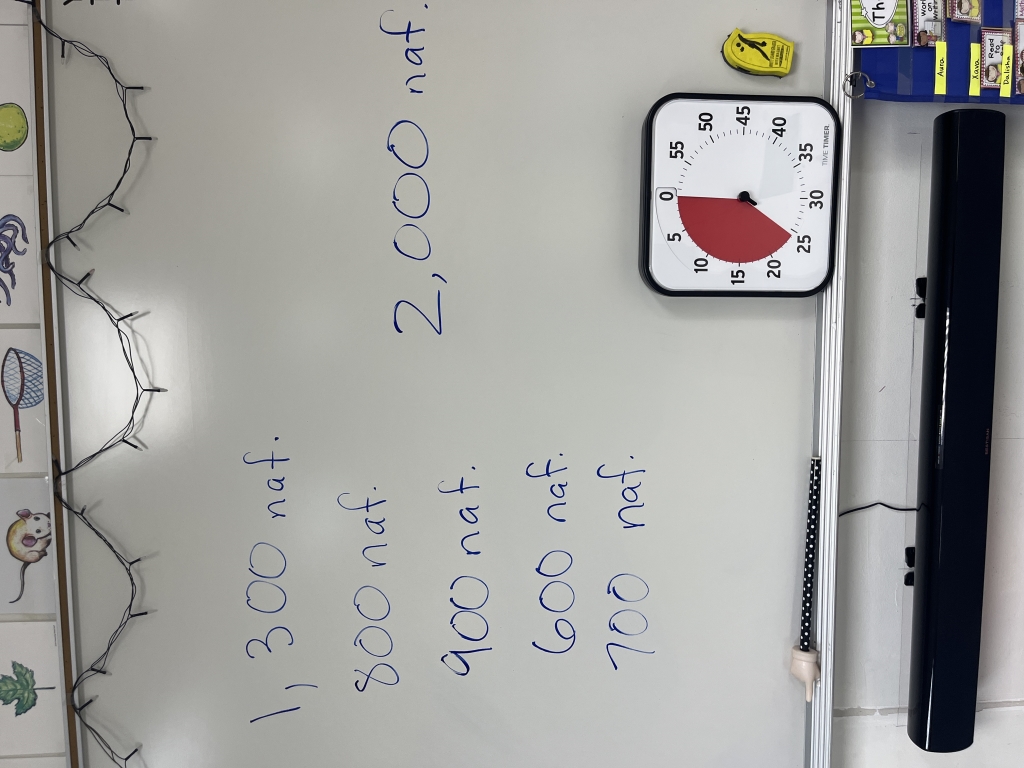 1,300 naf.
800 naf.
900 naf.
600 naf.
700 naf.
2,000 naf.
0
5
10
15
20
25
30
35
40
45
50
55
TIME TIMER
Th
Read to
Aura
Xava
Dalisha